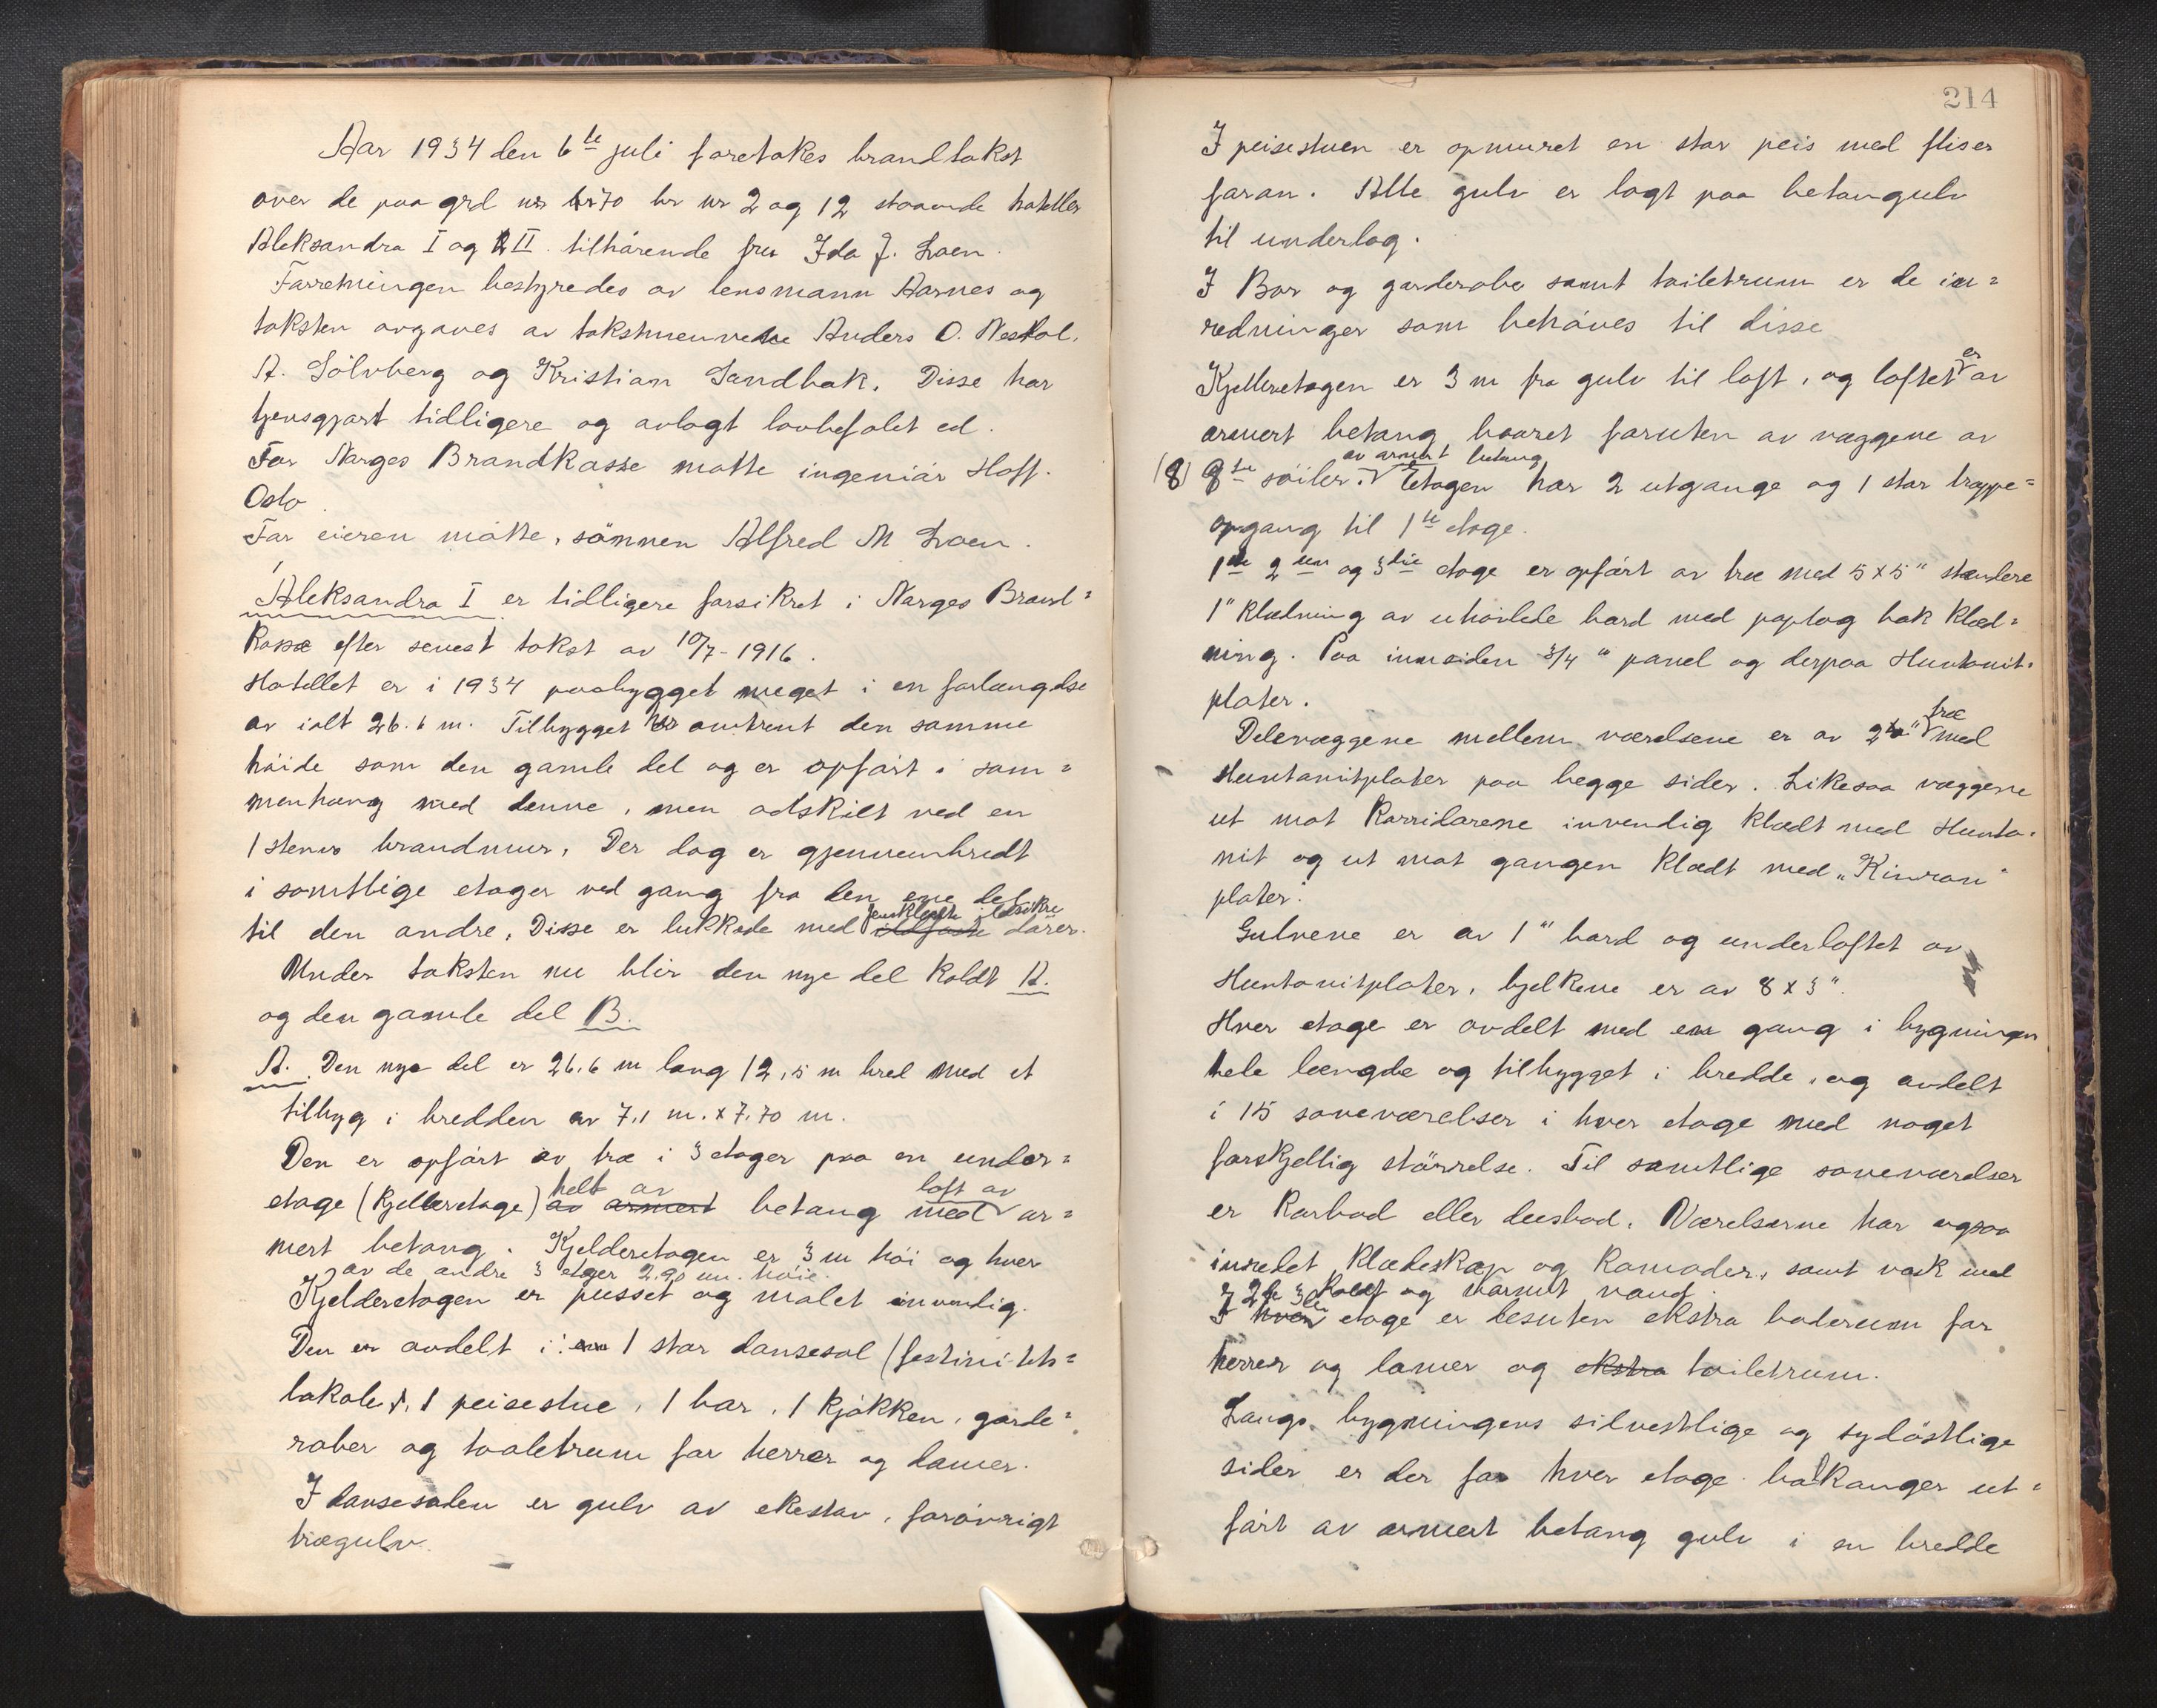 Aar 1934 den 6te juli foretokes brandtakst
over de paa grd nr 70 br nr 2 og 12 staaende hoteller
Aleksandra I og II tilhørende fru Ida J. Loen.
Forretningen bestyredes av lensmann Aarnes og
taksten avgaves av takstmennene Anders O. Nesdal,
A. Sölvberg og Kristian Sandbak. Disse har
tjensgjort tidligere og avlagt lovbefalet ed.
For Norges Brandkasse møtte ingeniör Hoff.
Oslo
For eieren møtte, sønnen Alfred M Loen.
Aleksandra I er tidligere forsikret i Norges Brand=
kasse efter senest takst av 10/7-1916.
Hotellet er i 1934 paabygget meget i en forlængelse
av ialt 26.6 m. Tilbygget har omtrent den samme
høide som den gamle del og er opført i sam=
menhæng med denne, men adskilt ved en
1 stens brandmur, Der dog er gjennembrudt
i samtlige etager ved gang fra den ene del
til den andre, Disse er lukkede med jernklædte ildsikre ildfaste dører.
Under taksten nu blir den nye del kaldt A.
og den gamle del B.
A. Den nye del er 26,6 m lang 12,5 m bred med et
tilbyg i bredden av 7,1 m. x 7,70 m.
Den er opført av træ i 3 etager paa en under=
etage (kjelleretage) helt av av armert betong med loft av ar=
mert betong. Kjelderetagen er 3 m høi og hver
av de andre 3 etger 2,90 m. høie.
Kjelderetagen er pusset og malet invendig.
Den er avdelt i: en 1 stor dansesal (festivitets=
lokale), 1 peisestue, 1 bar, 1 kjøkken, garde=
rober og toaletrum for herrer og damer.
I dansesalen er gulv av ekestav, forøvrigt
trægulv.
214
I peisestuen er opmuret en stor peis med fliser
foran. Alle gulv er lagt paa betongulv
til underlag.
I Bar og garderobe samt toiletrum er de in=
redninger som behøves til disse
Kjelleretagen er 3 m fra gulv til loft, og loftet er av
armert betong, baaret foruten av væggene av
(8) 8te søiler. av armert betong Etagen har 2 utgange og 1 stor trappe=
opgang til 1te etage.
1te 2den og 3die etage er opført av træ med 5 x 5" stendere
1" klædning av uhøvlede bord med paplag bak klæd=
ning. Paa innsiden 3/4" panel og derpaa Huntonit=
plater.
Delevæggene mellem værelsene er av 2" træ med
Huntonitplater paa begge sider. Likesaa væggene
ut mot korridorene invendig klædt med Hunto=
nit og ut mot gangen klædt med "Kinron"
plater.
Gulvene er av 1" bord og underloftet av
Huntonitplater, bjelkene er av 8 x 3".
Hver etage er avdelt med en gang i bygningen
hele længde og tilbygget i bredde, og avdelt
i 15 soveværelser i hver etage med noget
forskjellig størrelse. Til samtlige soveværelser
er karbad eller dusbad. Værelserne har ogsaa
inredet klædeskap og komoder, samt vask med
koldt og varmt vand.
I 2de 3die hver etage er desuten ekstra baderum for
herrer og damer og ekstra toiletrum.
Langs bygningens silvestlige og sydøstlige
sider er der for hver etage balkonger ut=
ført av armert betong gulv i en bredde